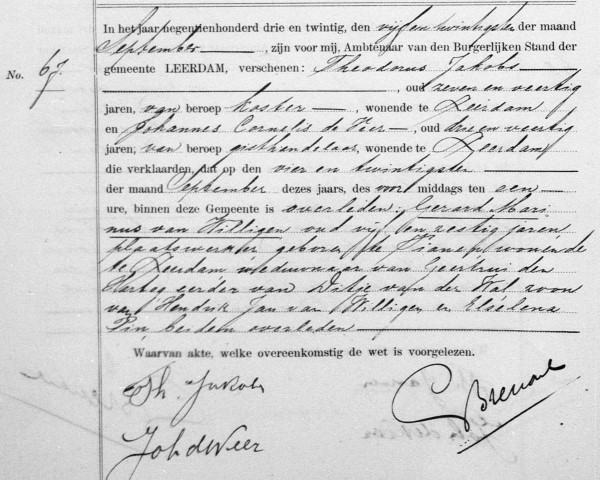 In het jaar negenhonderd drie en twintig, den vijf en twintigsten der maand
September, zijn voor mij, Ambtenaar van den Burgerlijken Stand der
gemeente LEERDAM, verschenen: Theodorus Jakobs
No. 67.
, oud zeven en veertig
jaren, van beroep koster, wonende te Leerdam
en Johannes Cornelis de Veer, oud drie en veertig
jaren, van beroep gisthandelaar, wonende te Leerdam
die verklaarden, dat op den vier en twintigsten
der maand September dezes jaars, des voormiddags ten een
ure, binnen deze Gemeente is overleden: Gerard Mari
nus van Willigen oud vijf en zestig jaren
plaatswerker geboren te Vianen wonende
te Leerdam weduwnaar van Geertrui den
Hartog eerder van Dirkje van der Wal zoon
van Hendrik Jan van Willigen en Elselena
Pin beiden overleden
Waarvan akte, welke overeenkomstig de wet is voorgelezen.
Th. Jakobs
Joh de Veer